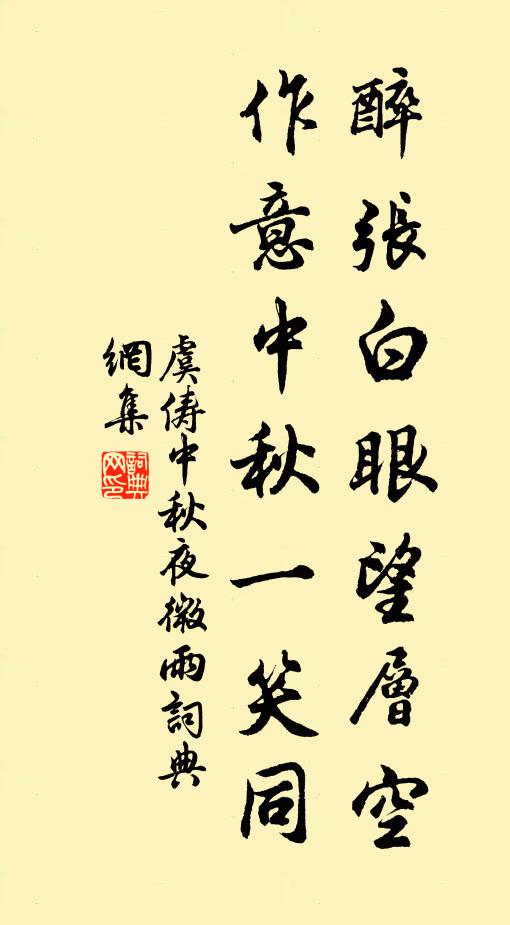 醉張白眼望層空
作意中秋一笑同
虞儔中秋夜微雨詞典
網集
詞典网印